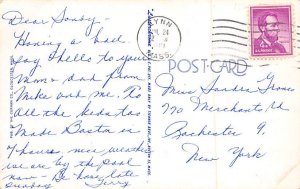 Dear Sondy-
Having a ball
say hello to your
Mom & dad from
Mike and me. To
all the kids too
Made Boston in
7 hours nice weather
we are by the pool
now - Be home late
Sunday Terry
LYNN
JUL 24
MASS.
4¢
POST CARD
Miss Sandra
770 Merchants Rd.
Rochester 9.
New York